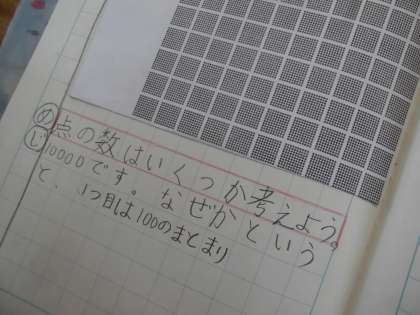 め 点の数はいくつか考えよう。
じ 10000です。なぜかという
と、1つ目は100のまとまり